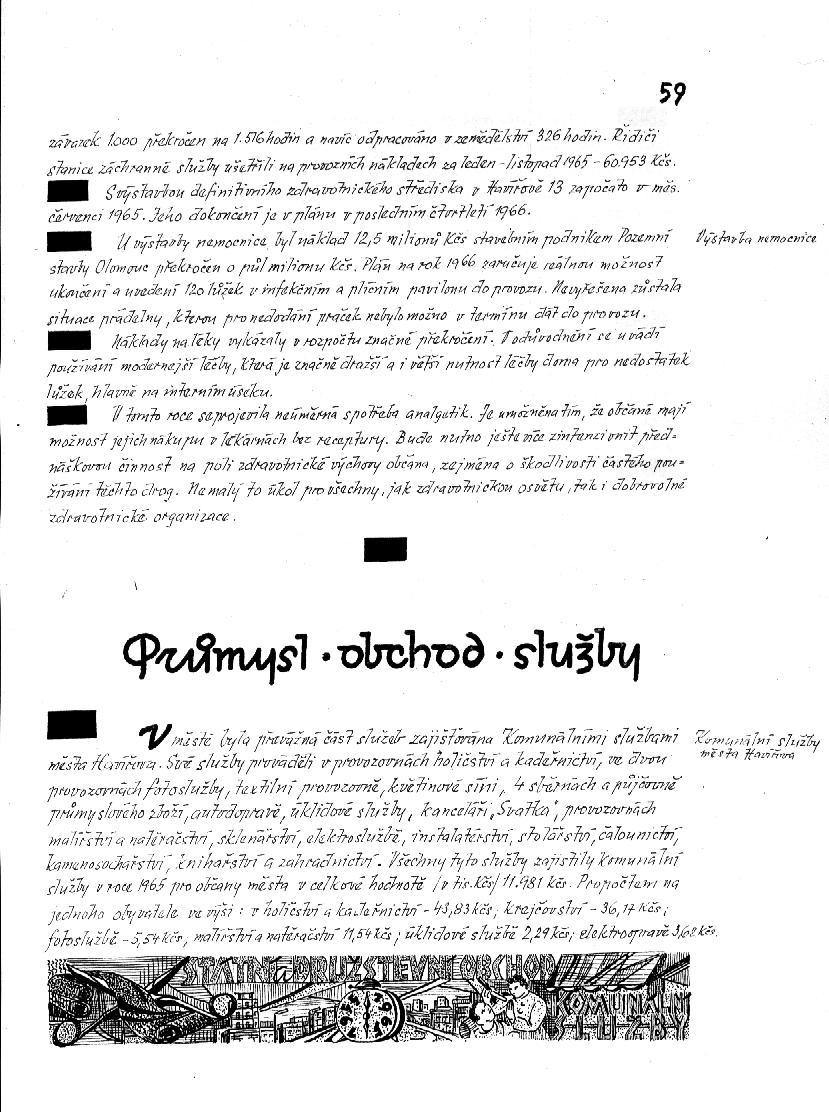 59
závazek 1.000 překročen na 1.516 hodin a navíc odpracováno v zemědělství 326 hodin. Řidiči
stanice záchranné služby ušetřili na provozních nákladech za leden - listopad 1965 - 60.953 Kčs.
S výstavbou definitivního zdravotnického střediska v Havířově 13 započato v měs.
červenci 1965. Jeho dokončení je v plánu v posledním čtvrtletí 1966.
U výstavby nemocnice byl náklad 12,5 milionů Kčs stavebním podnikem Pozemní
Výstavba nemocnice
stavby Olomouc překročen o půl milionu Kčs. Plán na rok 1966 zaručuje reálnou možnost
ukončení a uvedení 120 lůžek v infekčním a plicním pavilonu do provozu. Nevyřešena zůstala
situace prádelny, kterou pro nedodání praček nebylo možno v termínu dát do provozu.
Náklady na léky vykázaly v rozpočtu značné překročení. V odůvodnění se uvádí
používání modernejší léčby, která je značně dražší a i větší nutnost léčby doma pro nedostatek
lůžek, hlavně na interním úseku.
V tomto roce se projevila neúměrná spotřeba analgetik. Je umožněna tím, že občané mají
možnost jejich nákupu v lékárnách bez receptury. Bude nutno ještě více zintenzivnit před=
náškovou činnost na poli zdravotnické výchovy občana, zejména o škodlivosti častého pou=
žívání těchto drog. Nemalý to úkol pro všechny, jak zdravotnickou osvětu, tak i dobrovolné
zdravotnické organizace.
Průmysl · obchod · služby
V městě byla převážná část služeb zajišťována Komunálními službami
Komunální služby
města Havířova
města Havířova. Své služby prováděli v provozovnách holičství a kadeřnictví, ve dvou
provozovnách fotoslužby, textilní provozovně, květinové síni, 4 sběrnách a půjčovně
průmyslového zboží, autodopravě, úklidové služby, kanceláři „Svatka", provozovnách
malířství a natěračství, sklenářství, elektroslužbě, instalatérství, stolářství, čalounictví,
kamenosochařství, knihařství a zahradnictví. Všechny tyto služby zajistily Komunální
služby v roce 1965 pro občany města v celkové hodnotě /v tis. Kčs/ 11.981 Kčs. Propočtem na
jednoho obyvatele ve výši: v holičství a kadeřnictví - 43,83 Kčs; krejčovství - 36,17 Kčs;
fotoslužbě - 5,54 Kčs; malířství a natěračství 11,54 Kčs; úklidové službě 2,29 Kčs; elektroopravě 3,68 Kčs.
STÁTNÍ a DRUŽSTEVNÍ OBCHOD
KOMUNÁLNÍ
SLUŽBY